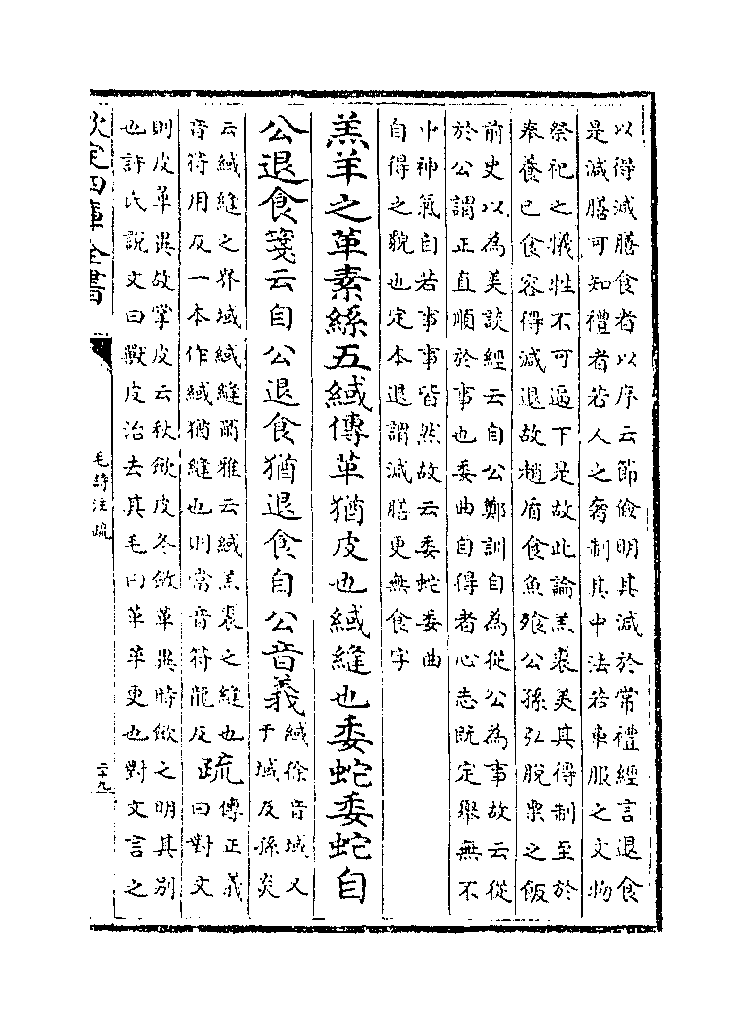 以得減膳食者以序云節儉明其減於常禮經言退食
是減膳可知禮者若人之奢制其中法若車服之文物
祭祀之犧牲不可逼下是故此論羔裘美其得制至於
奉養已食容得減退故趙盾食魚飱公孫弘脫粟之飯
前史以為美談經云自公鄭訓自為從公為事故云從
於公謂正直順於事也委曲自得者心志既定舉無不
中神氣自若事事皆然故云委蛇委曲
自得之貌也定本退謂減膳更無食字
羔羊之革素絲五緎傳革猶皮也緎縫也委蛇委蛇自
公退食箋云自公退食猶退食自公音義緎徐音域又
于域反孫炎
云緎縫之界域緎縫爾雅云緎羔裘之縫也
音符用反一本作緎猶縫也則當音符龍反
疏傳正義
曰對文
則皮革異故掌皮云秋斂皮冬斂革異時斂之明其別
也許氏說文曰獸皮治去其毛曰革革更也對文言之
欽定四庫全書
毛詩注疏
二十九